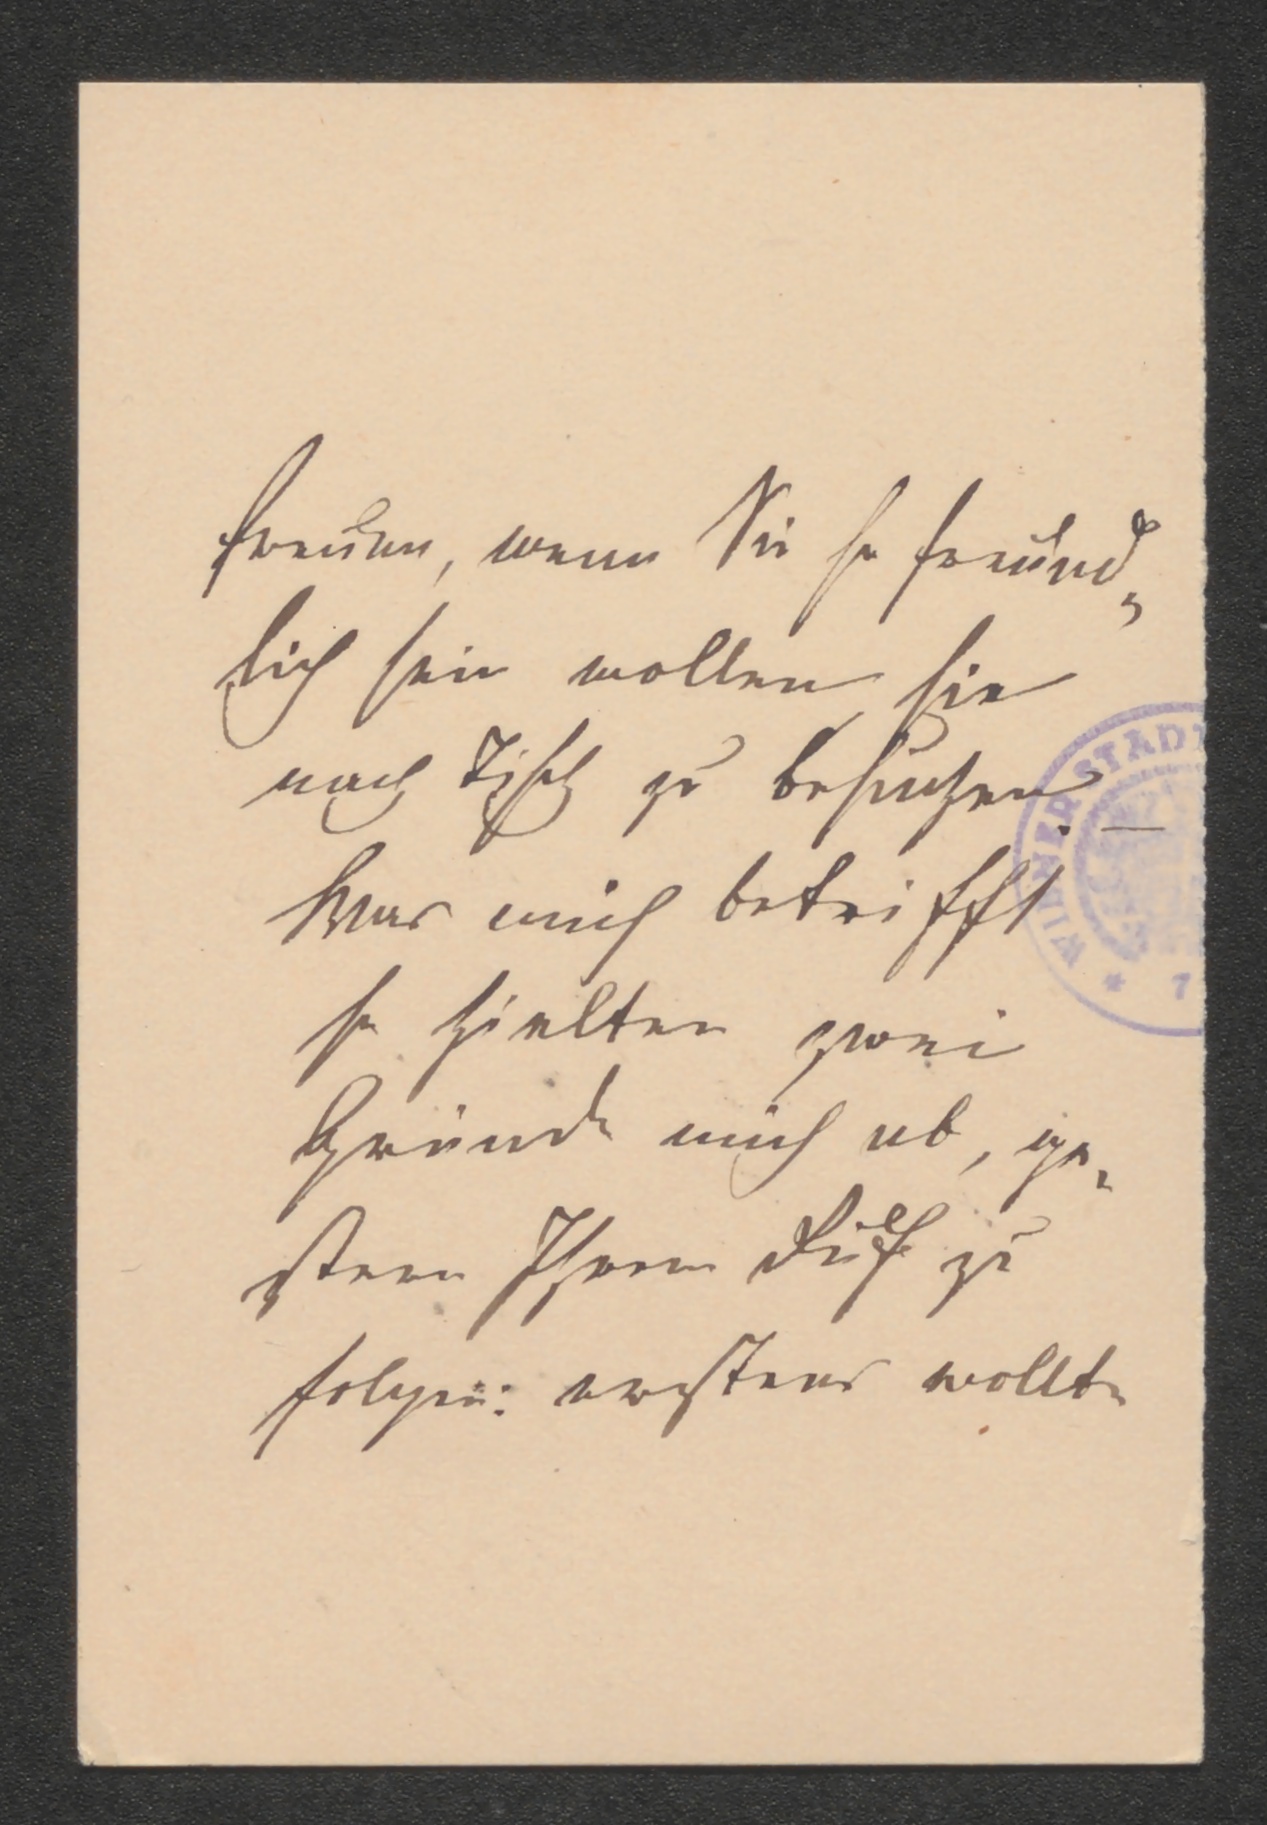 freuen, wenn Sie so freund-
lich sein wollen sie
nach Tisch zu besuchen. —
Was mich betrifft
so hielten zwei
Gründe mich ab, ge-
stern Ihrem Ruf zu
folgen: erstens wollte
WIENER STADT
* 7